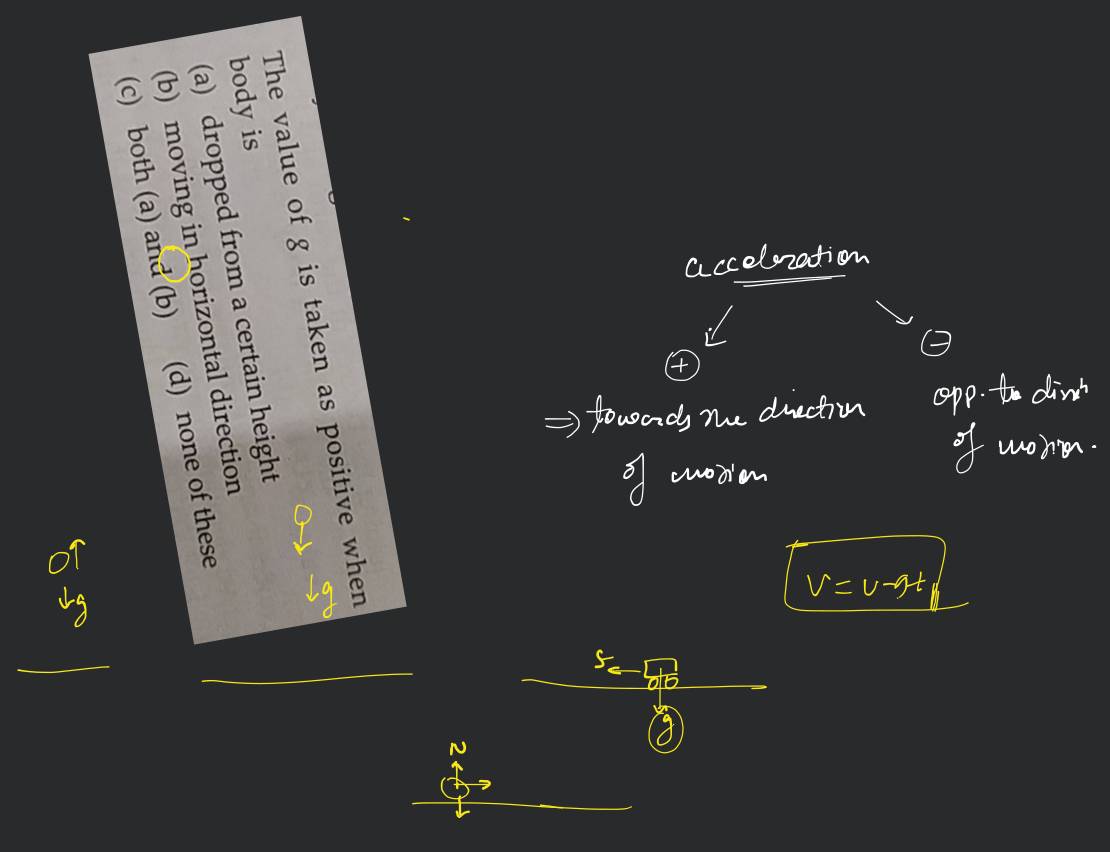 The value of g is taken as positive when
body is
(a) dropped from a certain height
(b) moving in horizontal direction
(c) both (a) and (b) (d) none of these
acceleration
+ -
⇒ towards the direction
of motion
opp. to dirxn
of motion.
g
g
V = u - gt
5
g
N